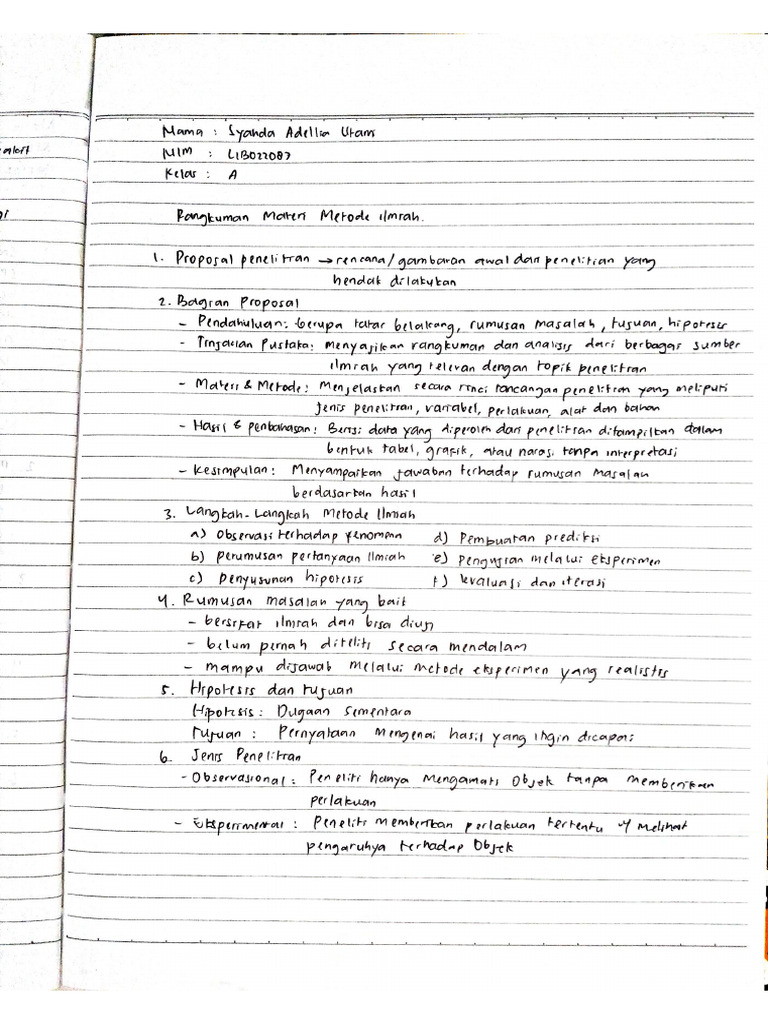 aloft
gi
Nama : Syahda Adellia Utami
NIM : L1B022087
Kelas : A
Rangkuman Materi Metode ilmiah.
1. Proposal penelitian → rencana/gambaran awal dari penelitian yang
hendak dilakukan
2. Bagian Proposal
- Pendahuluan: berupa latar belakang, rumusan masalah, tujuan, hipotesis
- Tinjauan Pustaka: menyajikan rangkuman dan analisis dari berbagai sumber
ilmiah yang relevan dengan topik penelitian
- Materi & Metode: Menjelaskan secara rinci rancangan penelitian yang meliputi
jenis penelitian, variabel, perlakuan, alat dan bahan
- Hasil & pembahasan: Berisi data yang diperoleh dari penelitian ditampilkan dalam
bentuk tabel, grafik, atau narasi tanpa interpretasi
- Kesimpulan: Menyampaikan jawaban terhadap rumusan masalah
berdasarkan hasil
3. Langkah-Langkah Metode Ilmiah
a) Observasi terhadap fenomena d) Pembuatan prediksi
b) perumusan pertanyaan ilmiah e) pengujian melalui eksperimen
c) penyusunan hipotesis f) evaluasi dan iterasi
4. Rumusan masalah yang baik
- bersifat ilmiah dan bisa diuji
- belum pernah diteliti secara mendalam
- mampu dijawab melalui metode eksperimen yang realistis
5. Hipotesis dan tujuan
Hipotesis : Dugaan sementara
Tujuan : Pernyataan Mengenai hasil yang ingin dicapai
6. Jenis Penelitian
- Observasional : Peneliti hanya Mengamati Objek tanpa memberikan
perlakuan
- Eksperimental : Peneliti memberikan perlakuan tertentu y Melihat
pengaruhya terhadap Objek